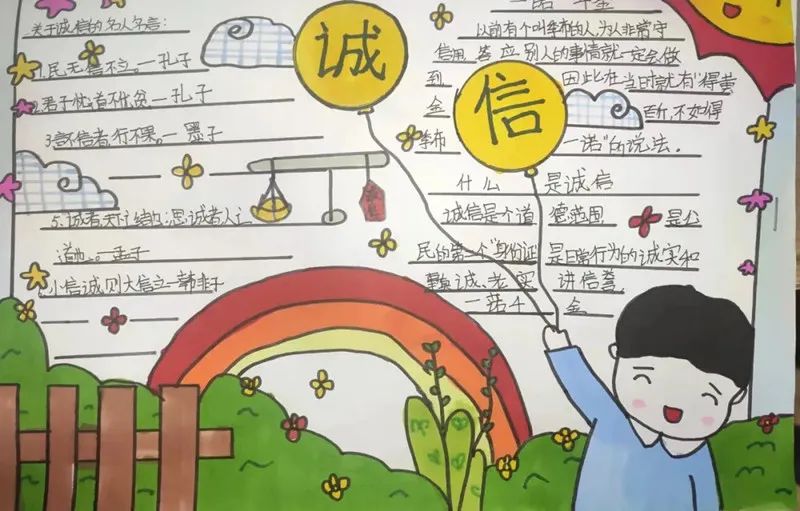 关于诚信的名人名言:
1.民无信不立。一孔子
2.君子忧道不忧贫一孔子
3言不信者,行不果。一墨子
5.诚者天之道也;思诚者人之
道也。一孟子
6小信诚则大信立一韩非子
诚
信
一诺千金
以前有个叫季布的人,为人非常守
信用,答应别人的事情就一定会做
到, 因此在当时就有"得黄
金 百斤,不如得
季布 一诺"的说法。
什么 是诚信
诚信是个道 德范围 是公
民的第二个"身份证 是日常行为的诚实和
诚、老实 讲信誉
一诺千 金